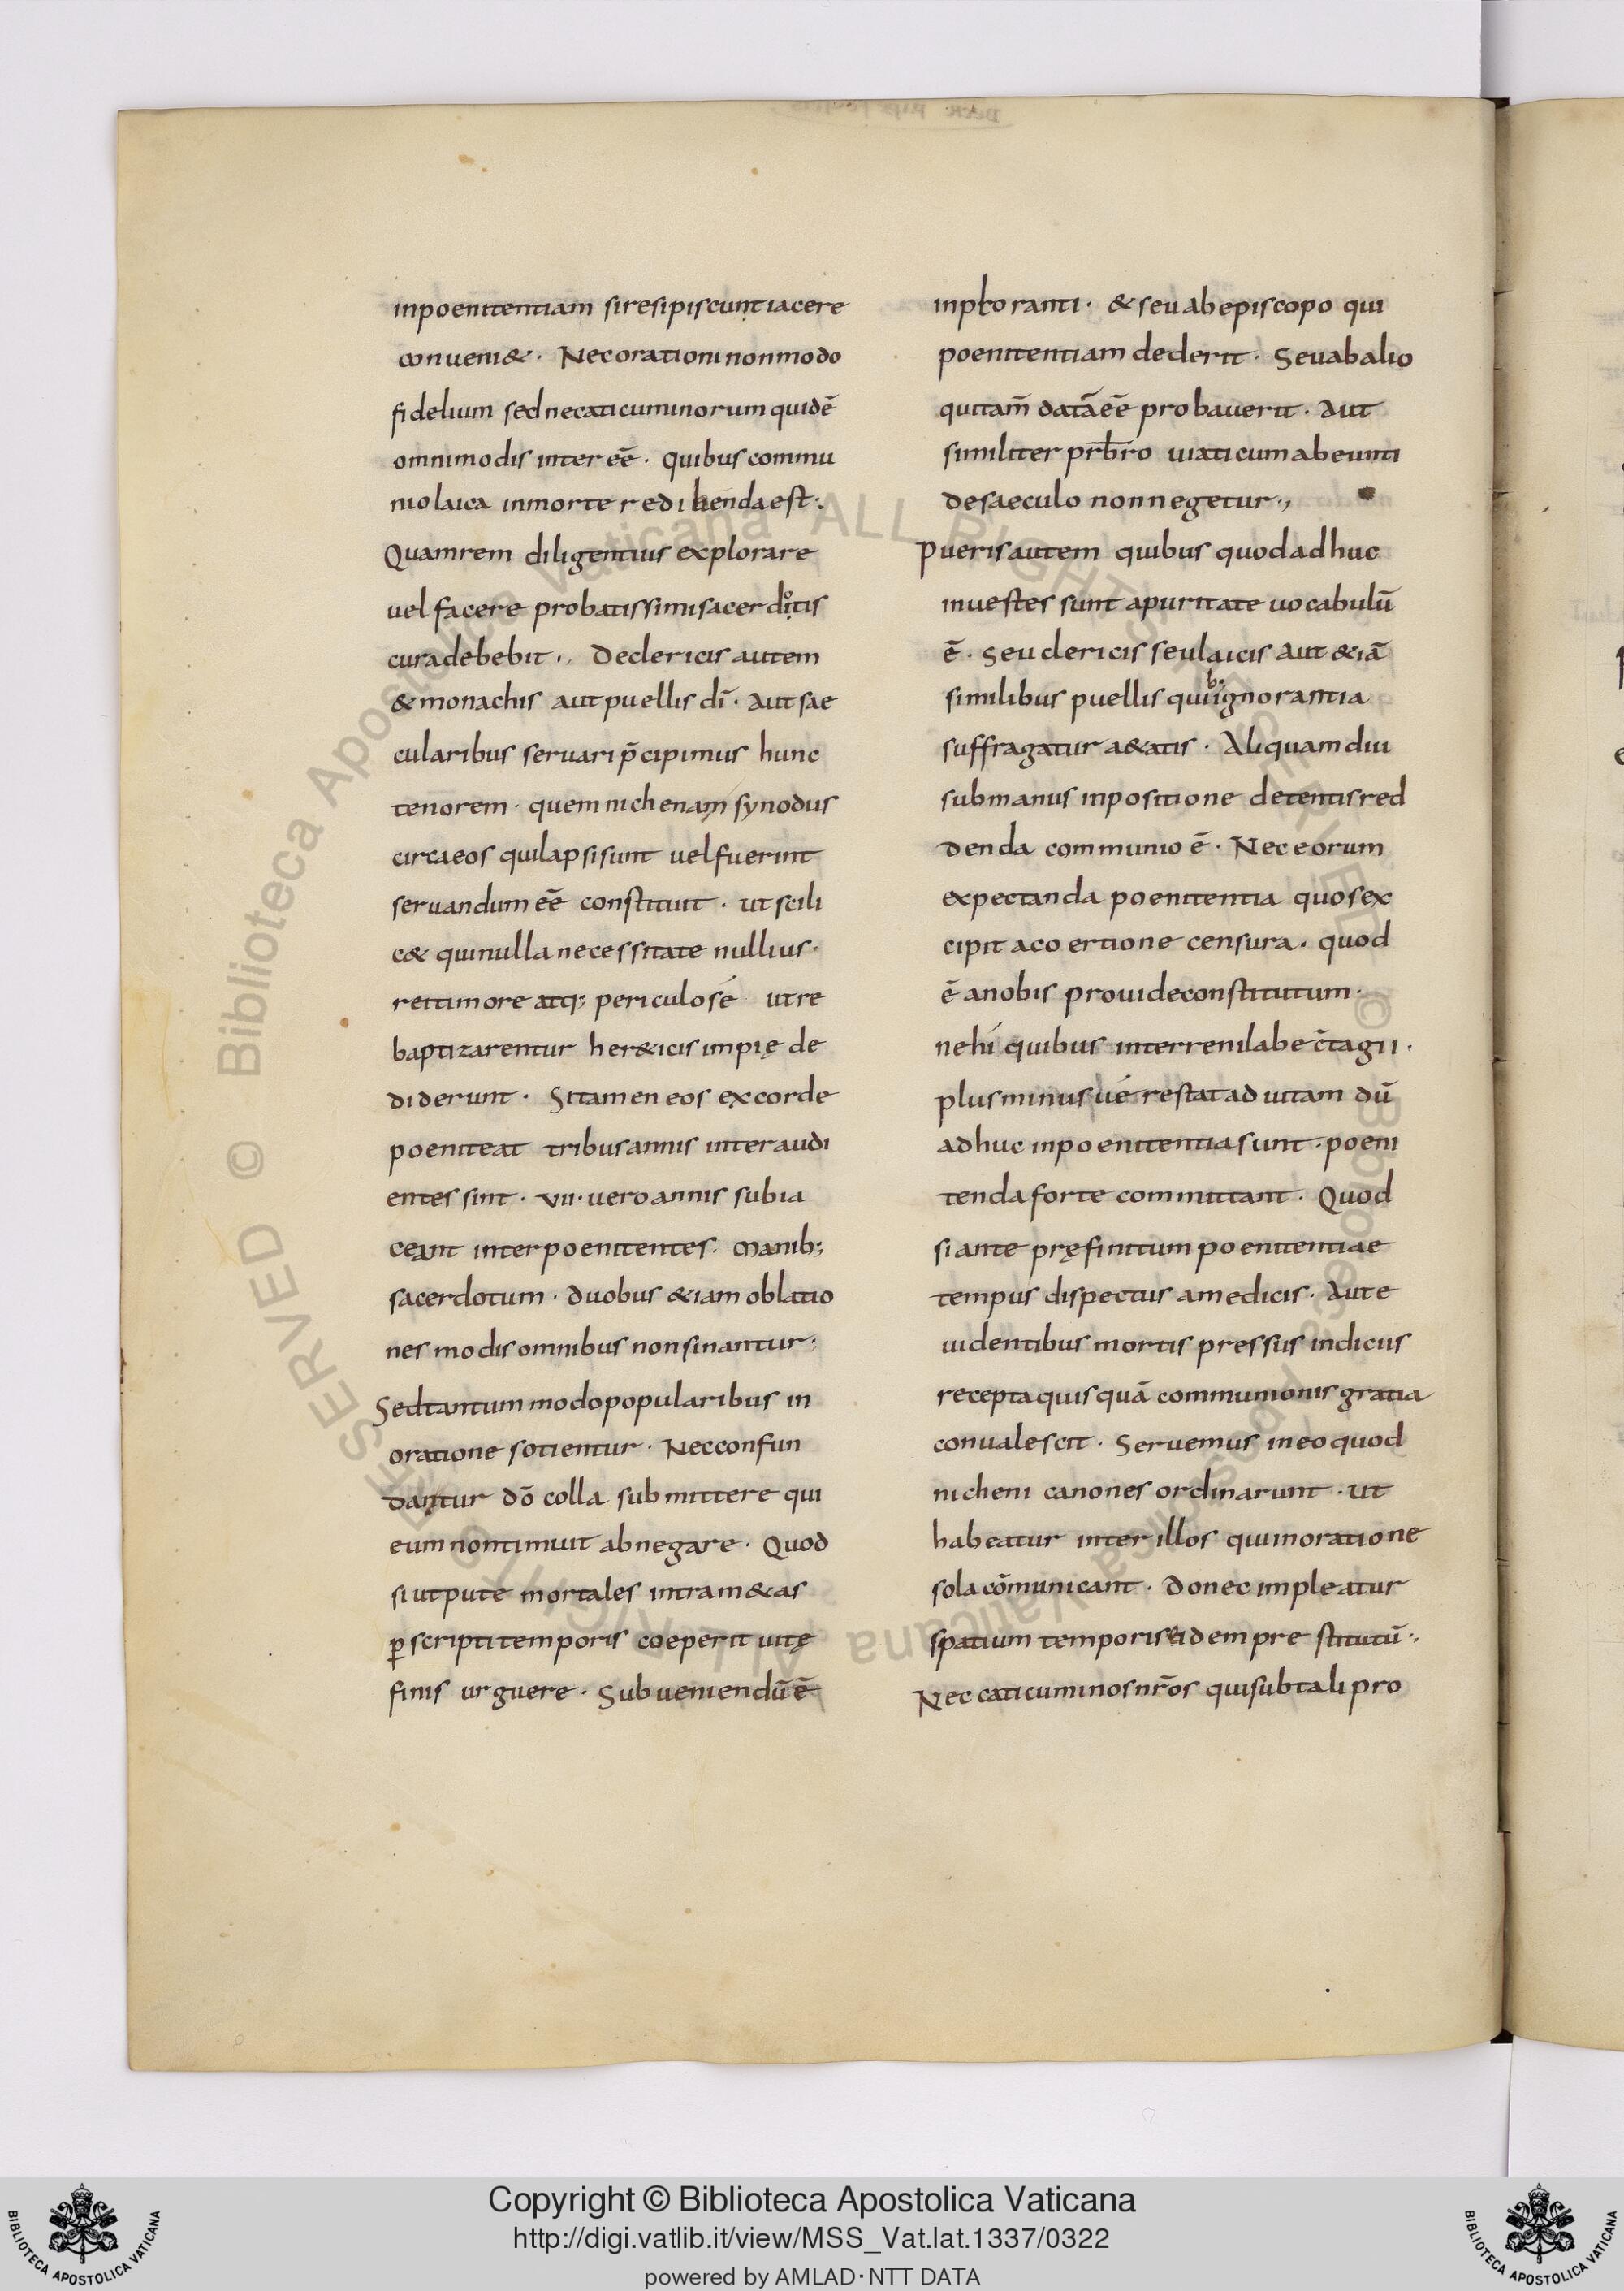 inpoenitentiam siresipiscunt iacere
conueni&. Necorationi nonmodo
fidelium sed necaticuminorum quidē
omnimodis inter eē. quibus commu
nio laica inmorte redibendaest:
Quamrem diligentius explorare
uel facere probatissimi sacerdotis
curadebebit., Declericis autem
&monachis aut puellis dī. Aut sae
cularibus seruari p̄cipimus hunc
tenorem. quem nichenam synodus
circaeos quilapsi sunt uelfuerint
seruandum eē constituit. ut scili
c& quinulla necessitate nullius.
rei timore atq; periculosé ut re
baptizarentur her&icis impię de
diderunt. Sitamen eos excorde
poeniteat tribus annis interaudi
entes sint. VII. uero annis subia
ceant inter poenitentes. Manib;
sacerdotum. duobus &iam oblatio
nes modis omnibus non sinantur:
Sedtantummodo popularibus in
oratione sotientur. Necconfun
dantur dō colla submittere qui
eum nontimuit abnegare. Quod
si utpute mortales intra m&as
p̱scripti temporis coeperit uitę
finis urguere. Subueniendū ē
inploranti. &seu abepiscopo qui
poenitentiam dederit. Seuabalio
quitam̄ datā eē probauerit. Aut
similiter prb̄ro uiaticum abeunti
desaeculo nonnegetur.,
Puerisautem quibus quodadhuc
inuestes sunt apuritate uocabulū
ē. Seu clericis seulaicis Aut &iā
similibus puellis quib; ignorantia
suffragatur a&atis. Aliquamdiu
submanus inpositione detentis red
denda communio ē. Nec eorum
expectanda poenitentia quos ex
cipit acoertione censura. quod
ē anobis prouide constitutum.
nehí quibus interrenilabe c̄tagii.
plus minus ué restat ad uitam dū
adhuc inpoenitentia sunt. poeni
tenda forte committant. Quod
si ante pręfinitum poenitentiae
tempus dispectus amedicis. Aut e
uidentibus mortis pressus indiciis
recepta quisquā communionis gratia
conualescit. Seruemus ineo quod
nicheni canones ordinarunt. ut
habeatur inter illos quiinoratione
sola cōmunicant. donec impleatur
spatium temporis eidem prestitutū.,
Nec caticuminos nr̄os quisubtali pro
Copyright © Biblioteca Apostolica Vaticana
http://digi.vatlib.it/view/MSS_Vat.lat.1337/0322
powered by AMLAD·NTT DATA